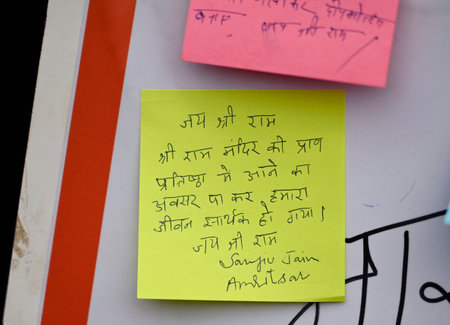 जय श्री राम
जय श्री राम
श्री राम मंदिर की प्राण
प्रतिष्ठा मे आने का
अवसर पा कर हमारा
जीवन सार्थक हो गया।
जय श्री राम
Sanjiv Jain
Amritsar